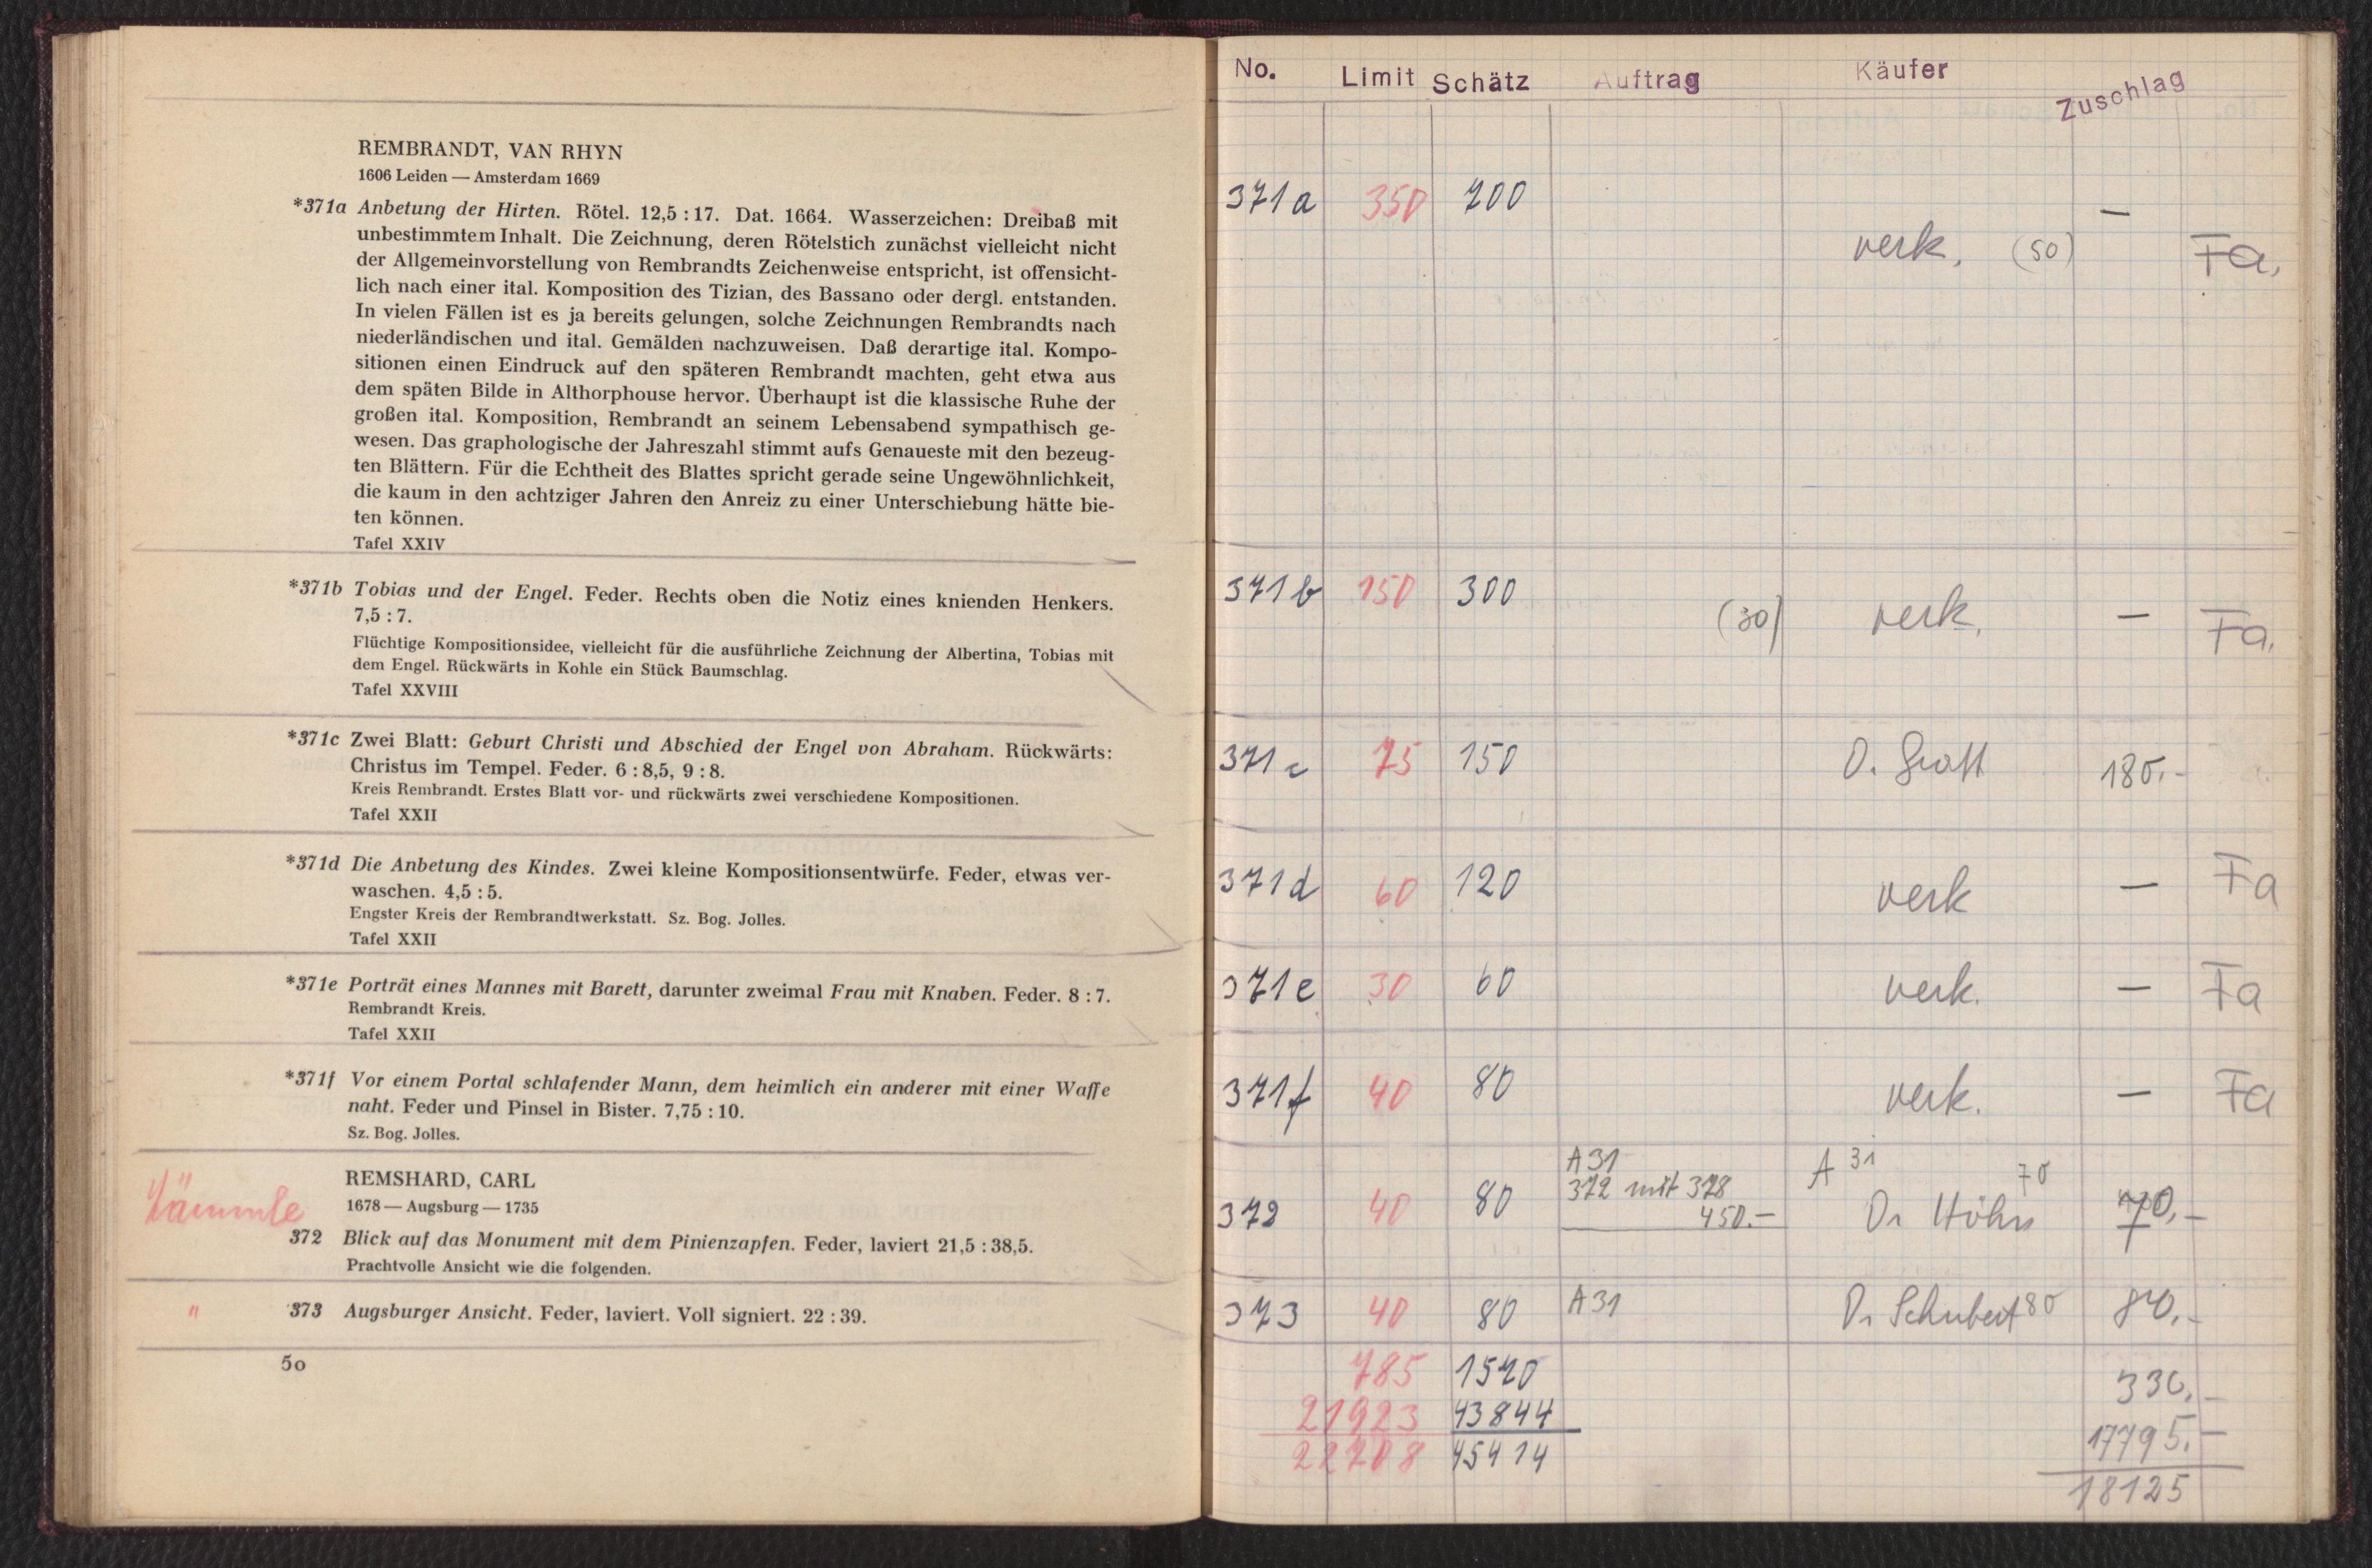 REMBRANDT, VAN RHYN
1606 Leiden — Amsterdam 1669
*371a Anbetung der Hirten. Rötel. 12,5 : 17. Dat. 1664. Wasserzeichen: Dreibaß mit
unbestimmtem Inhalt. Die Zeichnung, deren Rötelstich zunächst vielleicht nicht
der Allgemeinvorstellung von Rembrandts Zeichenweise entspricht, ist offensicht-
lich nach einer ital. Komposition des Tizian, des Bassano oder dergl. entstanden.
In vielen Fällen ist es ja bereits gelungen, solche Zeichnungen Rembrandts nach
niederländischen und ital. Gemälden nachzuweisen. Daß derartige ital. Kompo-
sitionen einen Eindruck auf den späteren Rembrandt machten, geht etwa aus
dem späten Bilde in Althorphouse hervor. Überhaupt ist die klassische Ruhe der
großen ital. Komposition, Rembrandt an seinem Lebensabend sympathisch ge-
wesen. Das graphologische der Jahreszahl stimmt aufs Genaueste mit den bezeug-
ten Blättern. Für die Echtheit des Blattes spricht gerade seine Ungewöhnlichkeit,
die kaum in den achtziger Jahren den Anreiz zu einer Unterschiebung hätte bie-
ten können.
Tafel XXIV
*371b Tobias und der Engel. Feder. Rechts oben die Notiz eines knienden Henkers.
7,5 : 7.
Flüchtige Kompositionsidee, vielleicht für die ausführliche Zeichnung der Albertina, Tobias mit
dem Engel. Rückwärts in Kohle ein Stück Baumschlag.
Tafel XXVIII
*371c Zwei Blatt: Geburt Christi und Abschied der Engel von Abraham. Rückwärts:
Christus im Tempel. Feder. 6 : 8,5, 9 : 8.
Kreis Rembrandt. Erstes Blatt vor- und rückwärts zwei verschiedene Kompositionen.
Tafel XXII
*371d Die Anbetung des Kindes. Zwei kleine Kompositionsentwürfe. Feder, etwas ver-
waschen. 4,5 : 5.
Engster Kreis der Rembrandtwerkstatt. Sz. Bog. Jolles.
Tafel XXII
*371e Porträt eines Mannes mit Barett, darunter zweimal Frau mit Knaben. Feder. 8 : 7.
Rembrandt Kreis.
Tafel XXII
*371f Vor einem Portal schlafender Mann, dem heimlich ein anderer mit einer Waffe
naht. Feder und Pinsel in Bister. 7,75 : 10.
Sz. Bog. Jolles.
REMSHARD, CARL
1678 — Augsburg — 1735
Lämmle
372 Blick auf das Monument mit dem Pinienzapfen. Feder, laviert 21,5 : 38,5.
Prachtvolle Ansicht wie die folgenden.
" 373 Augsburger Ansicht. Feder, laviert. Voll signiert. 22 : 39.
50
No. Limit Schätz Auftrag Käufer Zuschlag
371a 350 700 verk. (50) — Fa.
371b 150 300 (30) verk. — Fa.
371c 75 150 180.-
371d 60 120 verk — Fa
371e 30 60 verk. — Fa
371f 40 80 verk. — Fa
A31 A 31
372 40 80 372 mit 378 70
450.— Dr Höhn 70.-
373 40 80 A31 Dr Schubert 80 80.-
785 1570 330.-
21923 43844 17795.-
22708 45414 18125